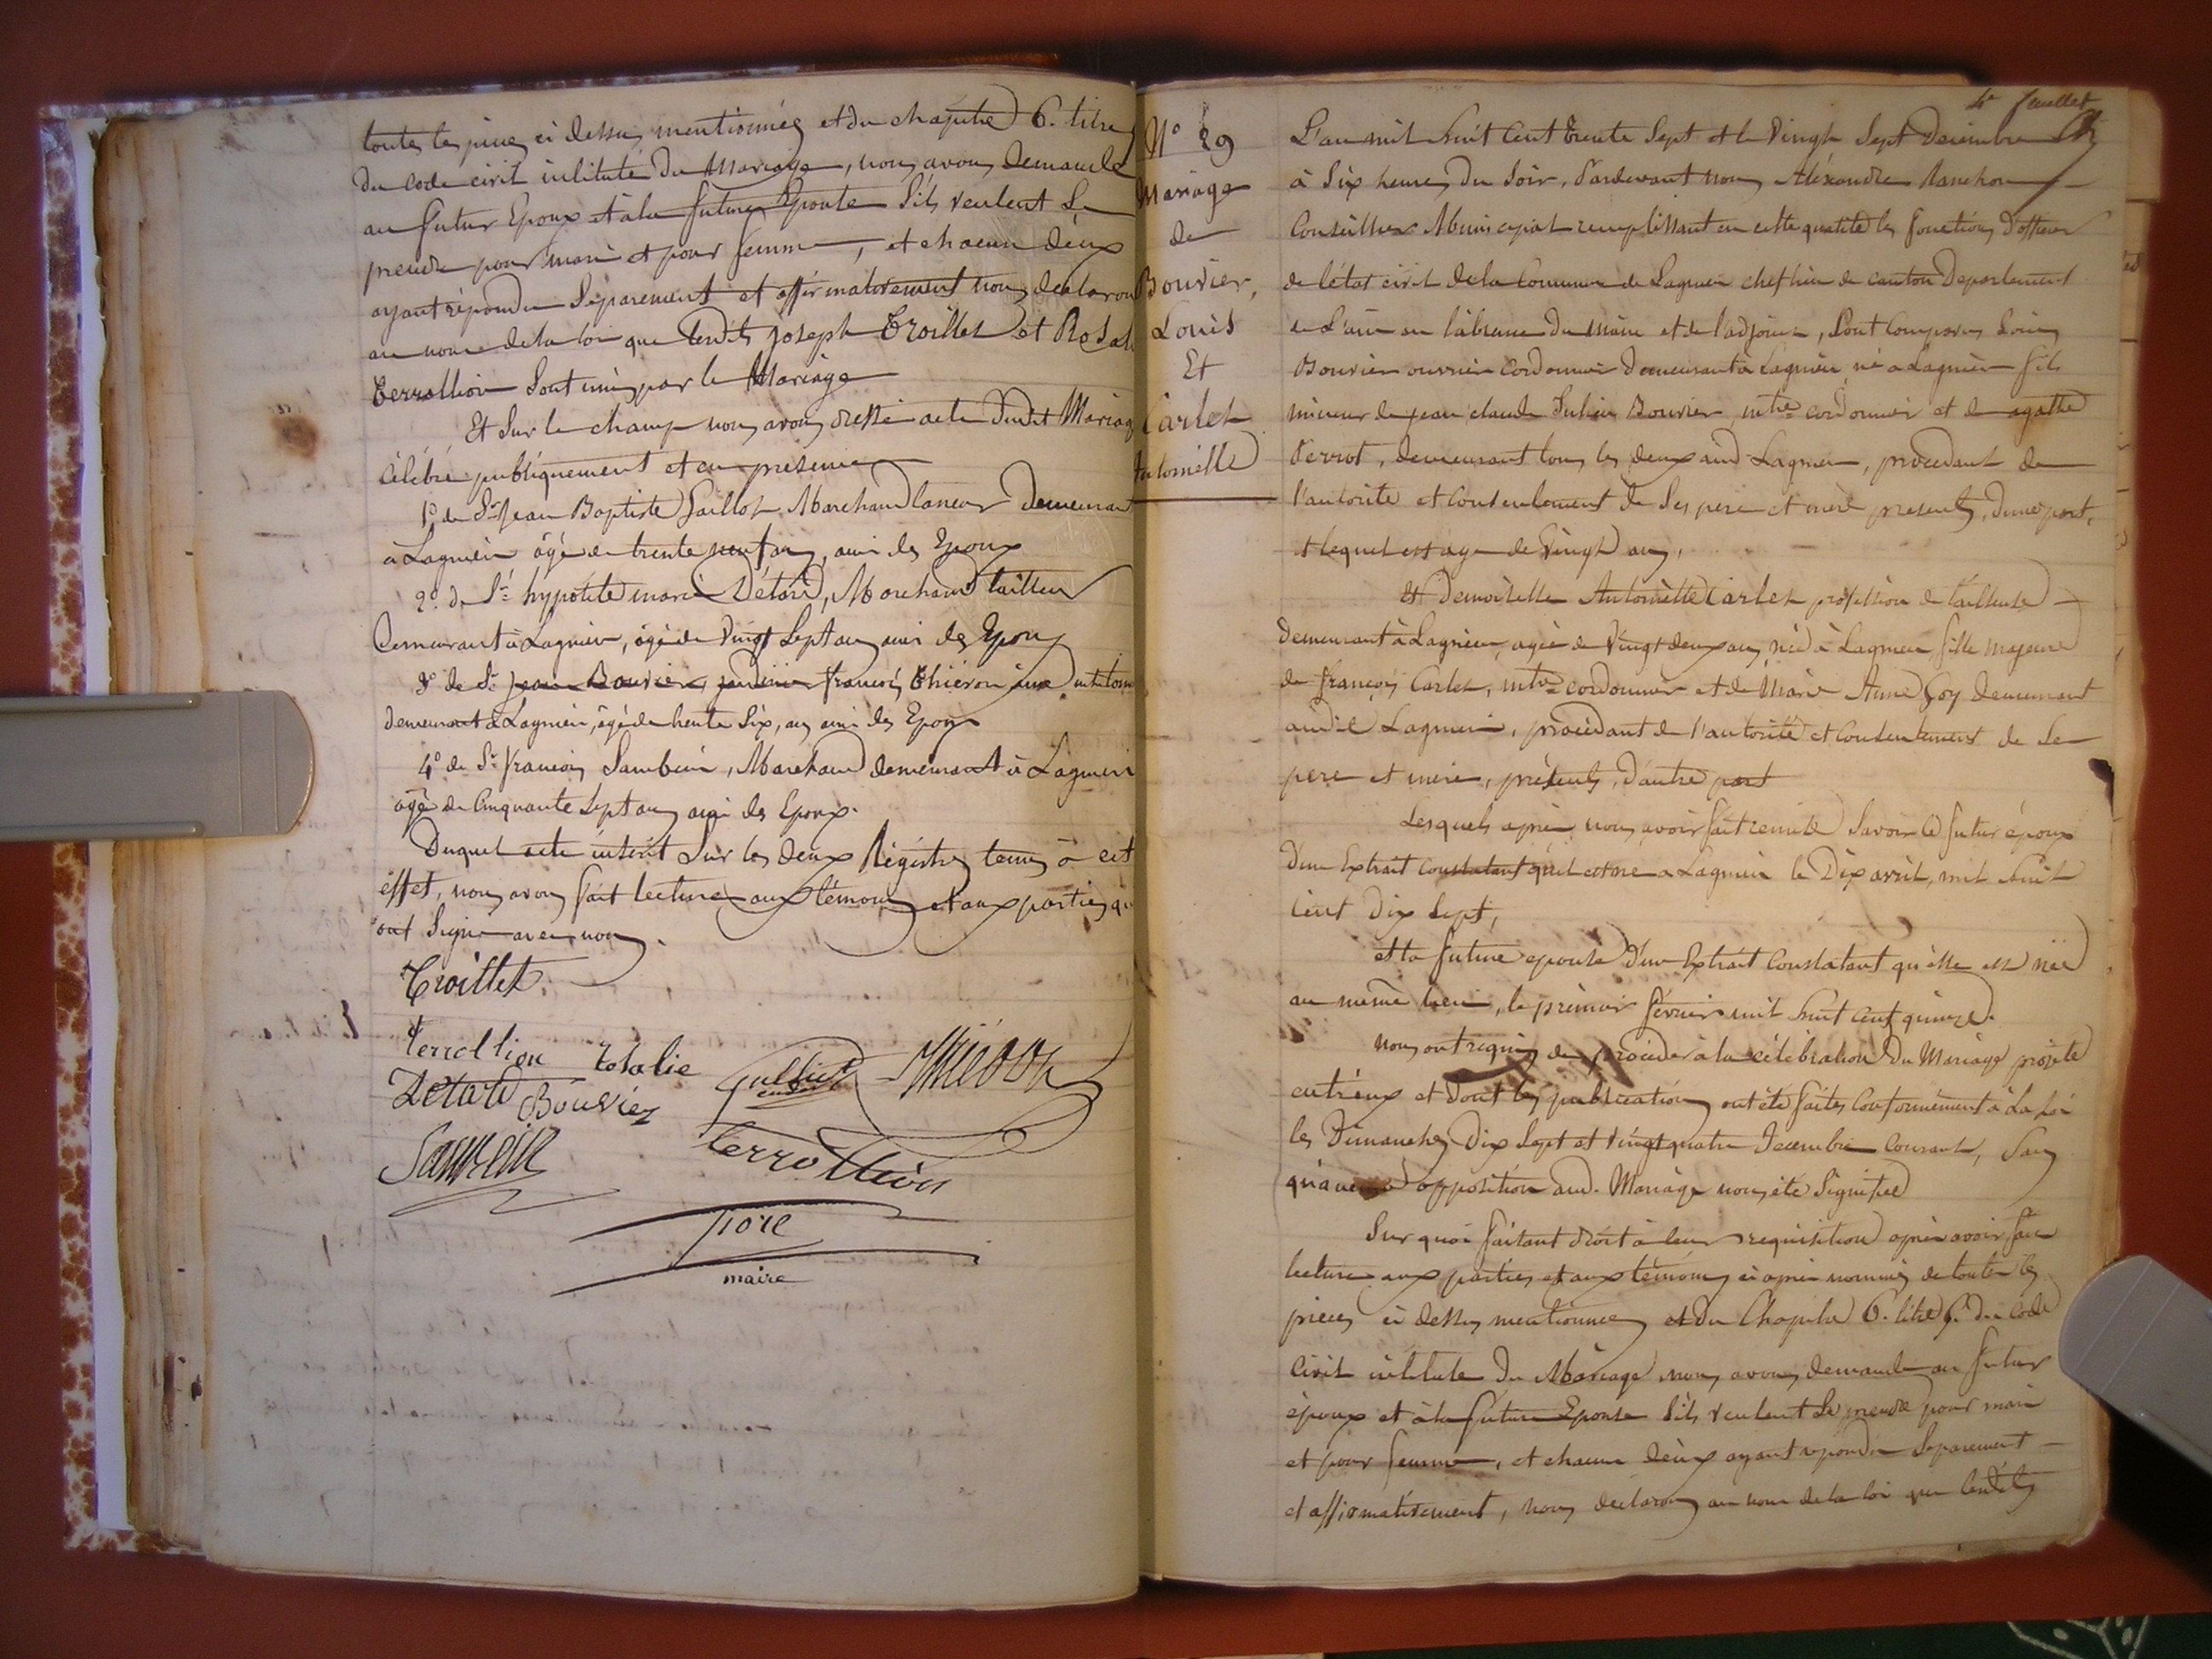 toutes les pieces ci dessus mentionnées et du chapitre 6. titre
du code civil intitulé du Mariage, nous avons demandé
au futur Epoux et à la future Epouse s'ils veulent se
prendre pour mari et pour femme, et chacun d'eux
ayant répondu séparément et affirmativement nous déclarons
au nom de la loi que lesdits joseph Troillet et Rosal
Terrollion sont unis par le Mariage
Et sur le champ nous avons dressé acte dudit Mariag
célébré publiquement et en présence
1º de Sr. Jean Baptiste Marchand taneur demeurant
à Lagnieu âgé de trente neuf ans, ami des Epoux
2º. de Sr. hypolite marie Détard, Marchand tailleur
demeurant à Lagnieu, âgé de Vingt Sept ans ami des Epoux
3º de Sr. Jean Bouvier jardinier françois Thiéron
demeurant à Lagnieu, âgé de trente Six, ans ami des Epoux
4º de Sr. francois Sambuin, Marchand demeurant à Lagnieu
agé de Cinquante Sept ans ami des Epoux.
Duquel acte inscrit sur les deux Régistres tenus à cet
effet, nous avons fait lecture aux témoins et aux parties qu
ont signé avec nous.
Troillet
terrollion rosalie
Détard Bouvier
Terrollion
maire
4e feuillet
Nº 29
Mariage
de
Bouvier,
Louis
Et
Carlet
Antoinette
L'an mil huit Cent trente Sept et le Vingt Sept Decembre
à Six heures du Soir, Pardevant nous Aléxandre Ranchon
Conseiller Municipal remplissant en cette qualité les fonctions d'officier
de l'état civil de la Commune de Lagnieu chef lieu de canton Departement
de L'ain en l'absence du Maire et de l'adjoint, sont comparus Louis
Bouvier ouvrier Cordonnier demeurant à Lagnieu, né à Lagnieu fils
mineur de jean claude Julien Bouvier, mtre cordonnier et de agathe
Perrot, demeurant tous les deux aud. Lagnieu, procedant de
l'autorite et Consentement de Ses pere et mere presents, d'une part,
et lequel est agé de Vingt ans,
Et Demoiselle Antoinette Carlet profession de tailleuse
demeurant à Lagnieu, agée de Vingt deux ans, née à Lagnieu fille majeure
de françois Carlet, mtre cordonnier et de Marie Anne Goy demeurant
audit Lagnieu, procédant de l'autorité et Consentement de Se
pere et mere, présents, d'autre part
Lesquels après nous avoir fait remise Savoir le futur époux
d'un Extrait constatant qu'il est né a Lagnieu le Dix avril, mil huit
cent Dix Sept,
et la future epouse d'un Extrait Constatant qu'elle est née
au même lieu, le premier février mil huit Cent quinze.
Nous ont requis de procéder à la célébration du Mariage projeté
entr'eux et dont les publications ont été faites Conformément à la loi
les Dimanches Dix Sept et Vingt quatre Decembre Courant, Sans
qu'aucune opposition aud. Mariage nous été signifiée
Sur quoi faisant droit à leur requisition après avoir fait
lecture aux parties et aux témoins ci après nommés de toutes les
pieces ci dessus mentionnées et du Chapitre 6. titre 5. du Code
Civil intitulé du Mariage nous avons demandé au futur
époux et à la future Epouse S'ils veulent se prendre pour mari
et pour femme, et chacun d'eux ayant repondu Separement
et affirmativement, nous declarons au nom de la loi que lesdits